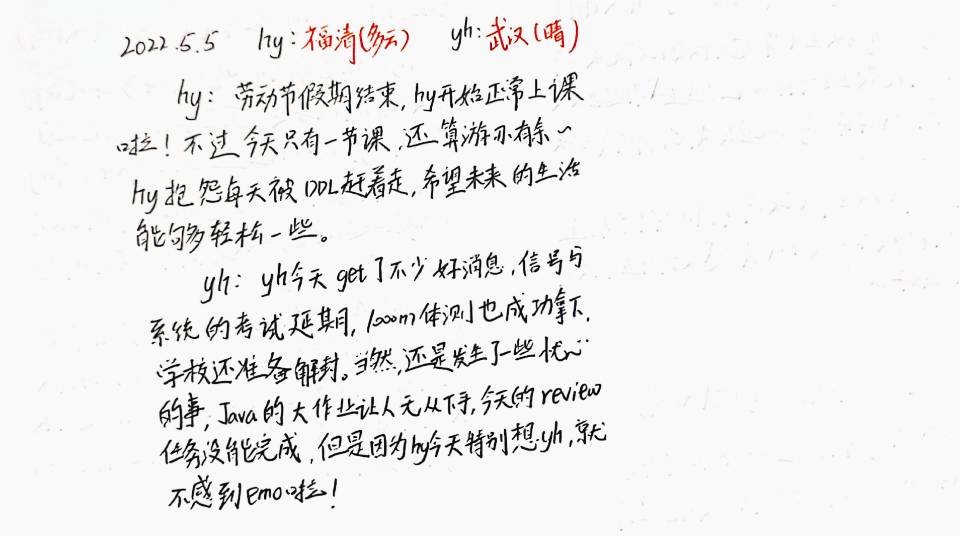 2022.5.5 hy:福清(多云) yh:武汉(晴)
hy: 劳动节假期结束,hy开始正常上课
啦!不过今天只有一节课,还算游刃有余~
hy抱怨每天被DDL赶着走,希望未来的生活
能够轻松一些。
yh: yh今天get了不少好消息,信号与
系统的考试延期,1000m体测也成功拿下,
学校还准备解封。当然,还是发生了一些忧心
的事,Java的大作业让人无从下手,今天的review
任务没能完成,但是因为hy今天特别想yh,就
不感到emo啦!